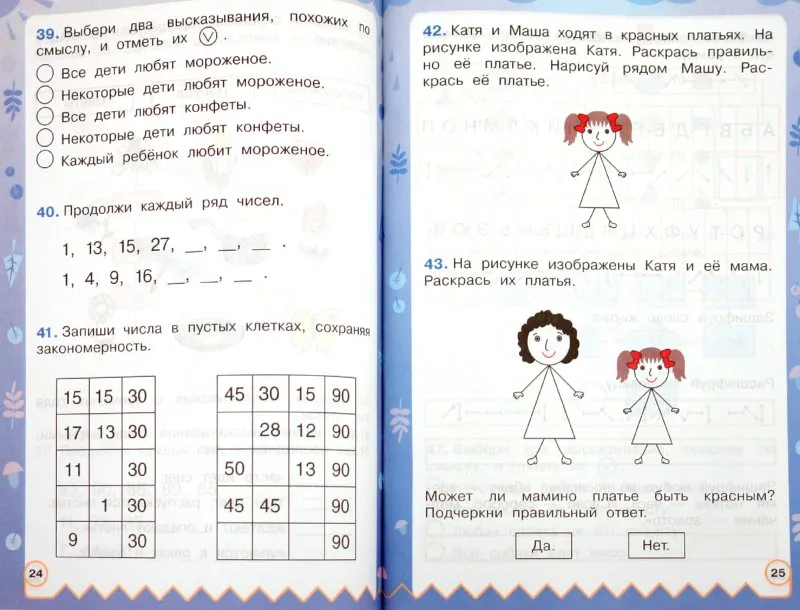 39. Выбери два высказывания, похожих по
смыслу, и отметь их V.
Все дети любят мороженое.
Некоторые дети любят мороженое.
Все дети любят конфеты.
Некоторые дети любят конфеты.
Каждый ребёнок любит мороженое.
40. Продолжи каждый ряд чисел.
1, 13, 15, 27, __, __, __ .
1, 4, 9, 16, __, __, __ .
41. Запиши числа в пустых клетках, сохраняя
закономерность.
15 15 30
17 13 30
11 30
1 30
9 30
45 30 15 90
28 12 90
50 13 90
45 45 90
90
24
42. Катя и Маша ходят в красных платьях. На
рисунке изображена Катя. Раскрась правиль-
но её платье. Нарисуй рядом Машу. Рас-
крась её платье.
43. На рисунке изображены Катя и её мама.
Раскрась их платья.
Может ли мамино платье быть красным?
Подчеркни правильный ответ.
Да. Нет.
25